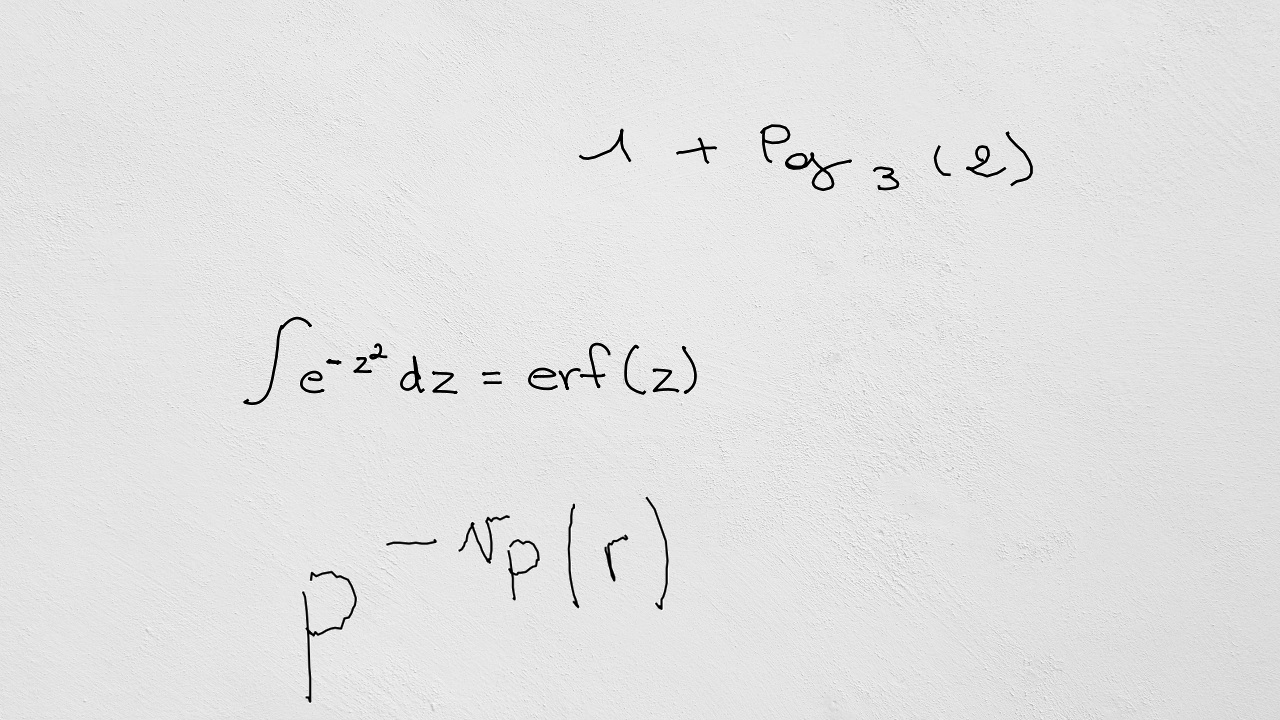 1 + log₃(2)
∫e^{-z²} dz = erf(z)
p^{-v_p(r)}